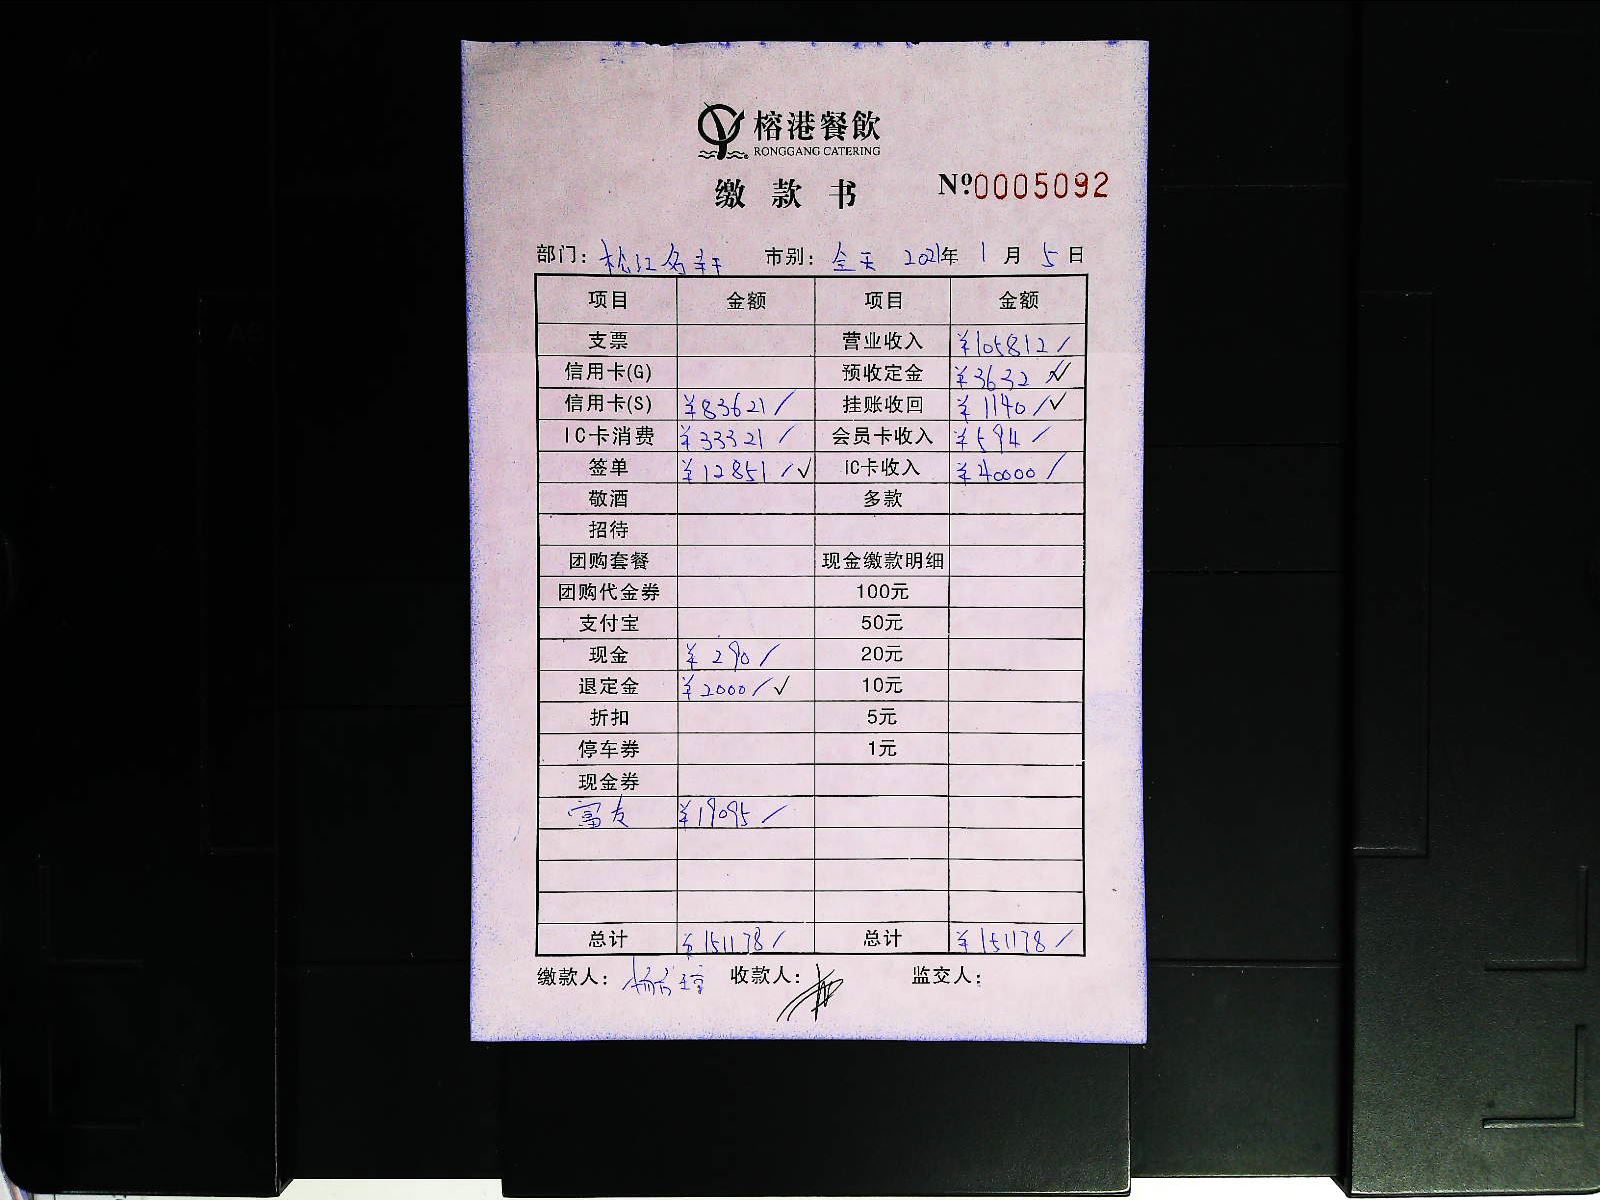 榕港餐飲
RONGGANG CATERING
缴款书 Nº0005092
部门：松江名轩 市别：全天 2021年1月5日
项目 金额 项目 金额
支票 营业收入 ¥105812
信用卡(G) 预收定金 ¥3632
信用卡(S) ¥83621 挂账收回 ¥1140
IC卡消费 ¥33321 会员卡收入 ¥594
签单 ¥12851 IC卡收入 ¥40000
敬酒 多款
招待
团购套餐 现金缴款明细
团购代金券 100元
支付宝 50元
现金 ¥290 20元
退定金 ¥2000 10元
折扣 5元
停车券 1元
现金券
富友 ¥19095
总计 ¥151178 总计 ¥151178
缴款人： 收款人： 监交人：